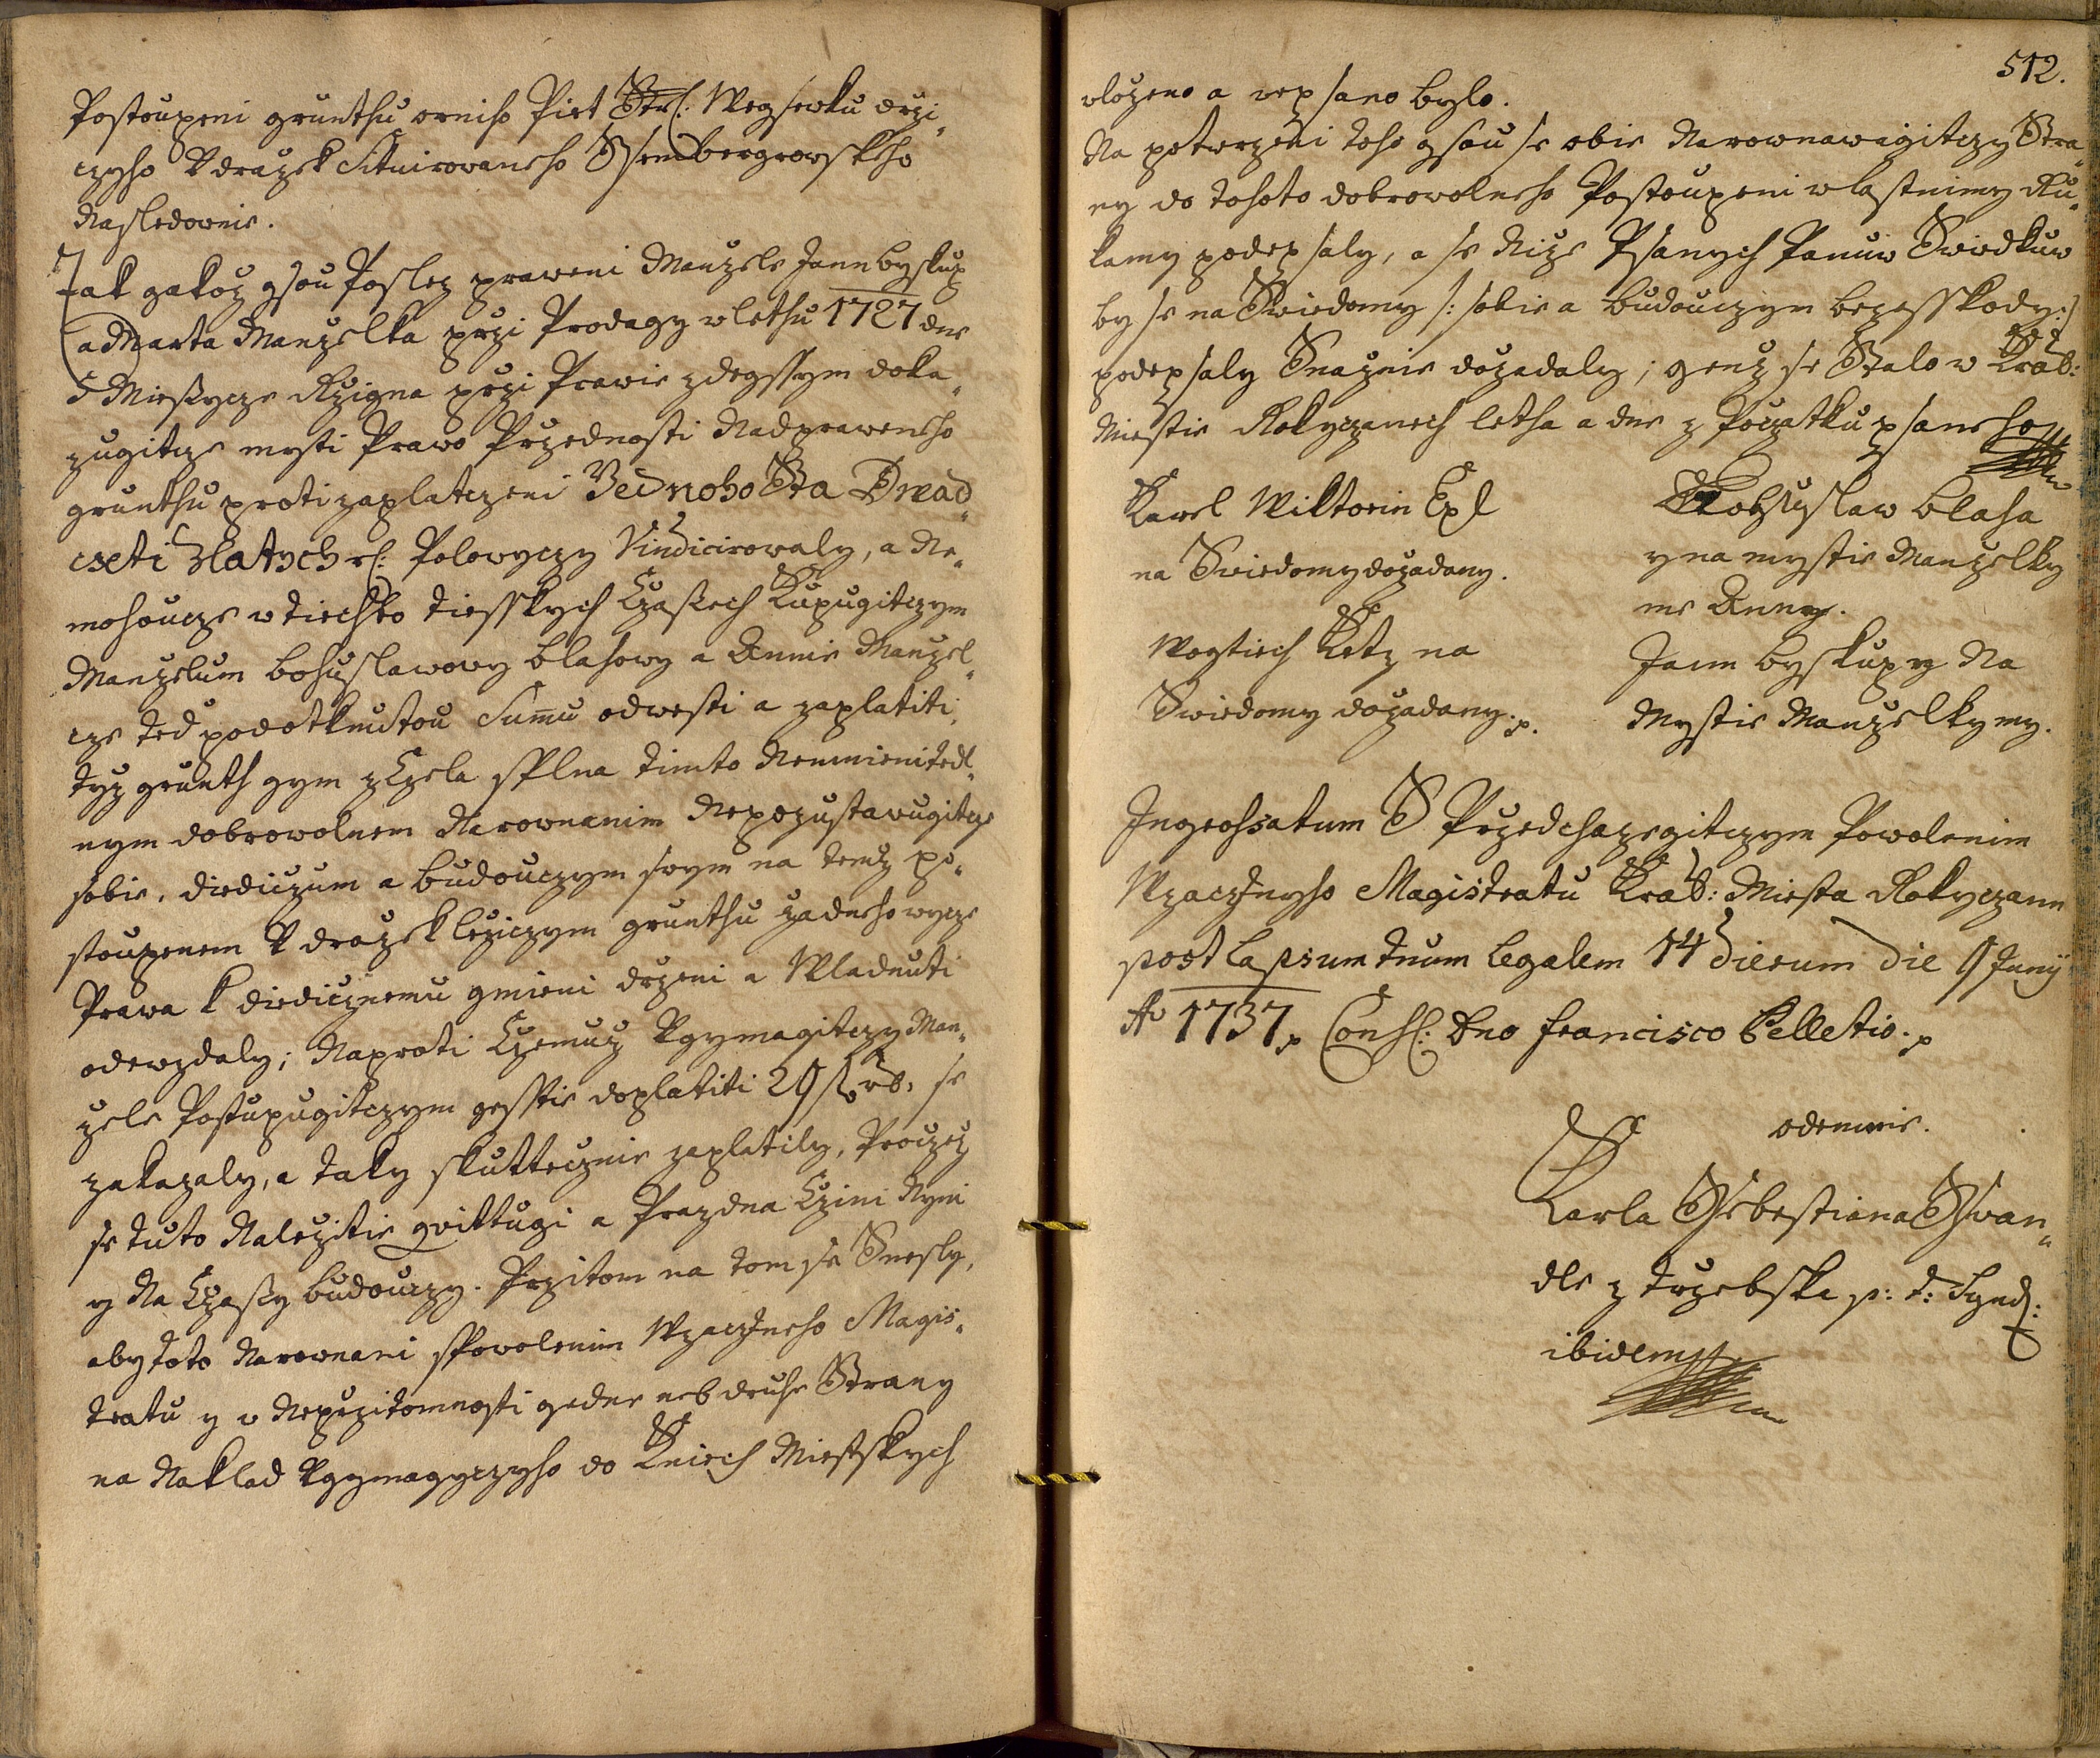 Postoupeni grunthu orniho Piet Str: Wegsewku drzi„
czyho V drazek Situirovaneho Ssembergrowskeho
Nasledownie.
Jak gakoz gsou Poslez praweni Manzele Jann byskup
a Marta Manzelka przi Prodagy w lethu 1727 dne
5 Miesycze Rzigna przi Prawie zdegssym doka„
zugitcze mysti Prawo Przednosti Nadprawenho
grunthu proti zaplatczeni Jednoho Sta Dwad„
czeti zlatych rf: Polowyczy Vindicirowaly, a Ne„
mohoucze w tiechto tiesskych Czasiech Kupugitczym
Manzelum bohuslawowy blahowy a Annie Manzel„
cze ted podotknutou Sumu odwesti a zaplatiti,
tyz grunth gym z Czela splna timto Nemienitedl„
nym dobrowolnem Narownanim Nepozustawugitcze
sobie, diediczum a budouczym swym na temz po„
stoupenem V drazek leziczym grunthu zadneho wycze
Prawa k diedicznemu gmieni drzeni a Wladnuti
odewzdaly; Naproti Czemuz Vgymagitczy Man„
zele Postupugitczym gesstie doplatiti 29 s. rb. se
zakazaly, a taky skuttecznie zaplatily, Proczez
se tuto Nalezitie qvittugi a Prazdna Czini Nyni
y Na Czasy budouczy. Przitom na tom se Snesly,
aby toto Narownani spowolenim Wzactneho Magis„
tratu y w Neprzitomnosti gedne neb druhe Strany
na Naklad Vgymagyczyho do Kniech Miestskych
512.
vlozeno a wepsano bylo.
Na potwrzeni toho gsou se obie Narownawagitczy Stra„
ny do tohoto dobrowolneho Postoupeni wlastnimy Ru„
kamy podepsaly, a se Nize Psanych Panuw Swiedkuw
by se na Swiedomy /: sobie a budouczym bezesskody:/
podepsaly Snaznie dozadaly; genz se Stalo w Krab:
Miestie Rokyczanech letha a dne z Poczatku psaneho
Karel Wiktorin Exl
na Swiedomy dozadany.
Wogtiech Ketz na
Swiedomy dozadany.p.
Bohuslaw blaha
y na mystie Manzelky
me Anny.
Jann byskup y Na
Mystie Manzelky my.
Ingrossatum S Przedchazegitczym Powolenim
Wzactnyho Magistratu Krab: Miesta Rokyczann
post lapsum tnum legalem 14 dierum die 9 Junÿ
Ao 1737. p Cons: Dno francisco Pelletio. p
odemnie.
Karla Ssebestiana Sswan„
dle z trzebska p: t: Synd:
ibidem